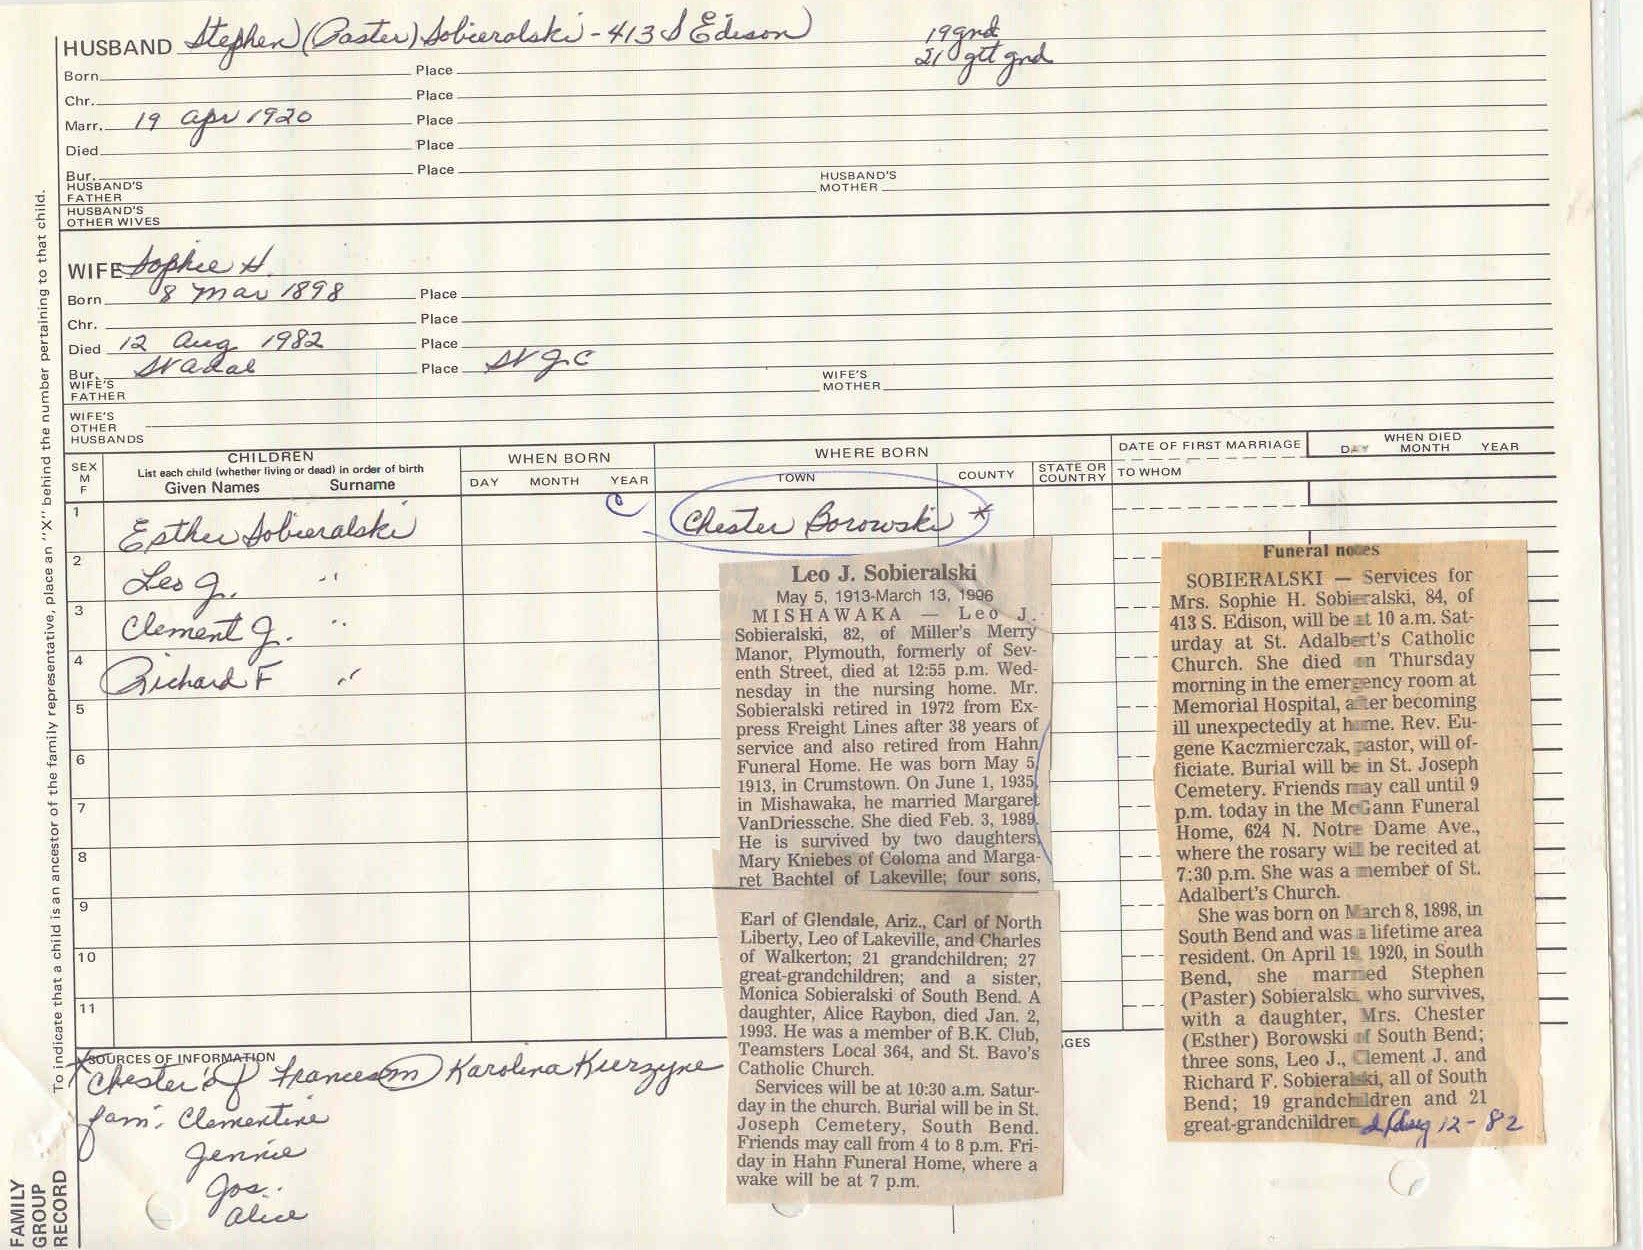 HUSBAND Stephen (Paster) Sobieralski - 413 S Edison
19 gnd
21 gtt gnd
Born Place
Chr. Place
Marr. 19 Apr 1920 Place
Died Place
Bur. Place
HUSBAND'S FATHER HUSBAND'S MOTHER
HUSBAND'S OTHER WIVES
WIFE Sophie H.
Born 8 Mar 1898 Place
Chr. Place
Died 12 Aug 1982 Place
Bur. St Adal Place St J.C
WIFE'S FATHER WIFE'S MOTHER
WIFE'S OTHER HUSBANDS
SEX M F
CHILDREN
List each child (whether living or dead) in order of birth
Given Names Surname
WHEN BORN
DAY MONTH YEAR
WHERE BORN
TOWN COUNTY STATE OR COUNTRY
DATE OF FIRST MARRIAGE
TO WHOM
WHEN DIED
DAY MONTH YEAR
1 Esther Sobieralski Chester Borowski *
2 Leo J. "
3 Clement J. "
4 Richard F "
5
6
7
8
9
10
11
Leo J. Sobieralski
May 5, 1913-March 13, 1996
MISHAWAKA — Leo J.
Sobieralski, 82, of Miller's Merry
Manor, Plymouth, formerly of Sev-
enth Street, died at 12:55 p.m. Wed-
nesday in the nursing home. Mr.
Sobieralski retired in 1972 from Ex-
press Freight Lines after 38 years of
service and also retired from Hahn
Funeral Home. He was born May 5,
1913, in Crumstown. On June 1, 1935,
in Mishawaka, he married Margaret
VanDriessche. She died Feb. 3, 1989.
He is survived by two daughters,
Mary Kniebes of Coloma and Marga-
ret Bachtel of Lakeville; four sons,
Earl of Glendale, Ariz., Carl of North
Liberty, Leo of Lakeville, and Charles
of Walkerton; 21 grandchildren; 27
great-grandchildren; and a sister,
Monica Sobieralski of South Bend. A
daughter, Alice Raybon, died Jan. 2,
1993. He was a member of B.K. Club,
Teamsters Local 364, and St. Bavo's
Catholic Church.
Services will be at 10:30 a.m. Satur-
day in the church. Burial will be in St.
Joseph Cemetery, South Bend.
Friends may call from 4 to 8 p.m. Fri-
day in Hahn Funeral Home, where a
wake will be at 7 p.m.
Funeral notes
SOBIERALSKI — Services for
Mrs. Sophie H. Sobieralski, 84, of
413 S. Edison, will be at 10 a.m. Sat-
urday at St. Adalbert's Catholic
Church. She died on Thursday
morning in the emergency room at
Memorial Hospital, after becoming
ill unexpectedly at home. Rev. Eu-
gene Kaczmierczak, pastor, will of-
ficiate. Burial will be in St. Joseph
Cemetery. Friends may call until 9
p.m. today in the McGann Funeral
Home, 624 N. Notre Dame Ave.,
where the rosary will be recited at
7:30 p.m. She was a member of St.
Adalbert's Church.
She was born on March 8, 1898, in
South Bend and was a lifetime area
resident. On April 19, 1920, in South
Bend, she married Stephen
(Paster) Sobieralski, who survives,
with a daughter, Mrs. Chester
(Esther) Borowski of South Bend;
three sons, Leo J., Clement J. and
Richard F. Sobieralski, all of South
Bend; 19 grandchildren and 21
great-grandchildren.
Aug 12-82
GES
SOURCES OF INFORMATION
Chester's of Frances m Karolina Kierzyne
fam: Clementine
Jennie
Jos.
Alice
To indicate that a child is an ancestor of the family representative, place an "X" behind the number pertaining to that child.
FAMILY GROUP RECORD